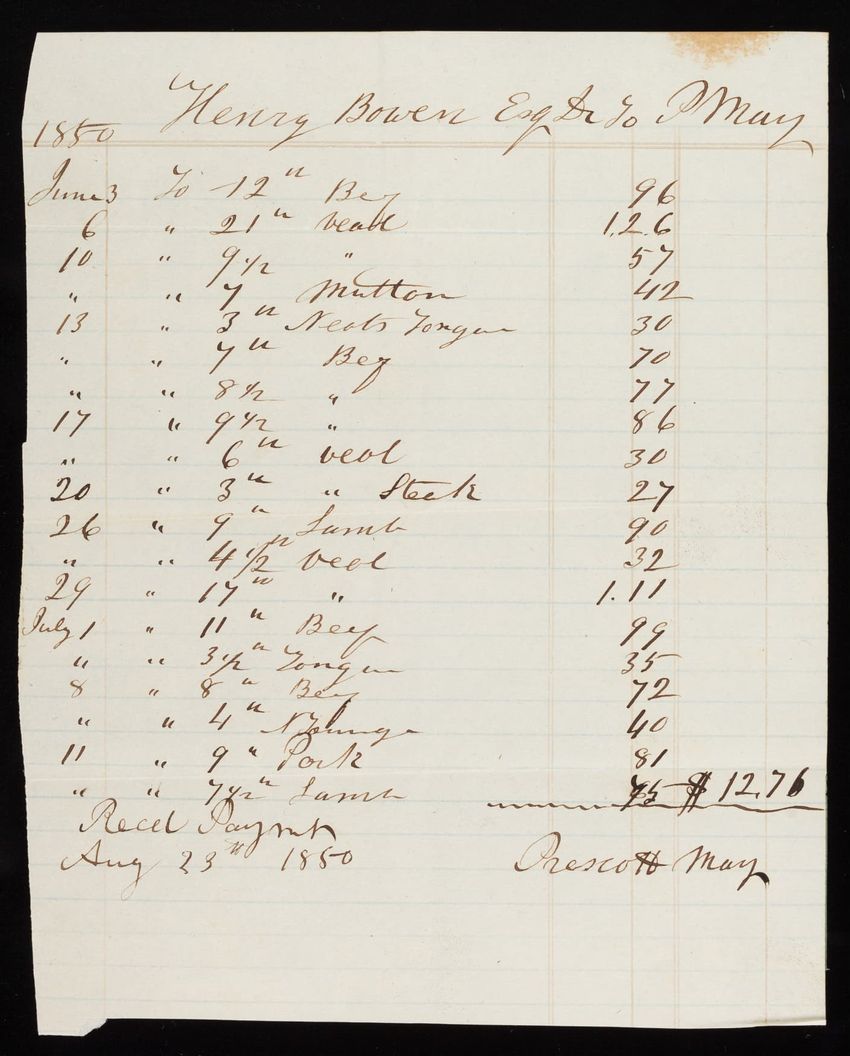 Henry Bowen Esq Dr To P May
1850
June 3 To 12 " Beef 96
6 " 21 " veal 1.26
10 " 9 1/2 " 57
" " 7 Mutton 42
13 " 3 " Neats Tongue 30
" " 7 " Beef 70
" " 8 1/2 " 77
17 " 9 1/2 " 86
" " 6 " veal 30
20 " 3 " " Steak 27
26 " 9 " Lamb 90
" " 4 1/2 " Veal 32
29 " 17 " " 1.11
July 1 " 11 " Beef 99
" " 3 1/2 " Tongue 35
8 " 8 " Beef 72
" " 4 " N Tounge 40
11 " 9 " Pork 81
" " 7 1/2 " Lamb 75 $12.76
Recd Paymnt
Aug 23th 1850 Prescott May